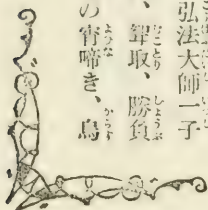 弘法大師一子
、聟取、勝負
の宵啼き、烏